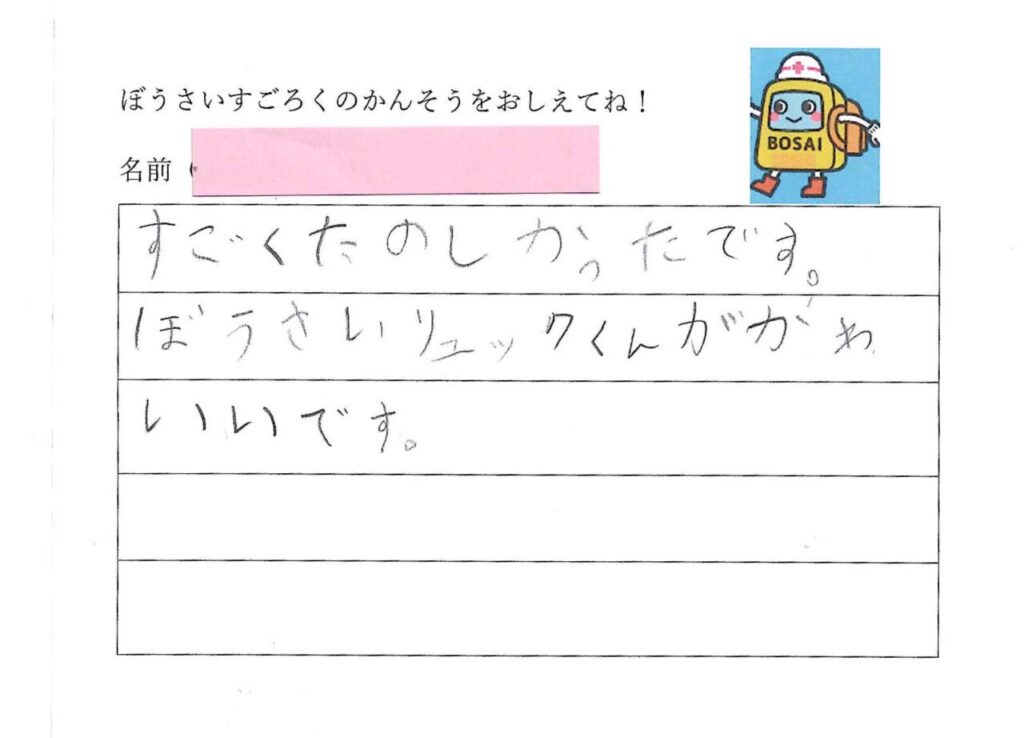 ぼうさいすごろくのかんそうをおしえてね！
BOSAI
名前（
すごくたのしかったです。
ぼうさいリュックくんがかわ
いいです。